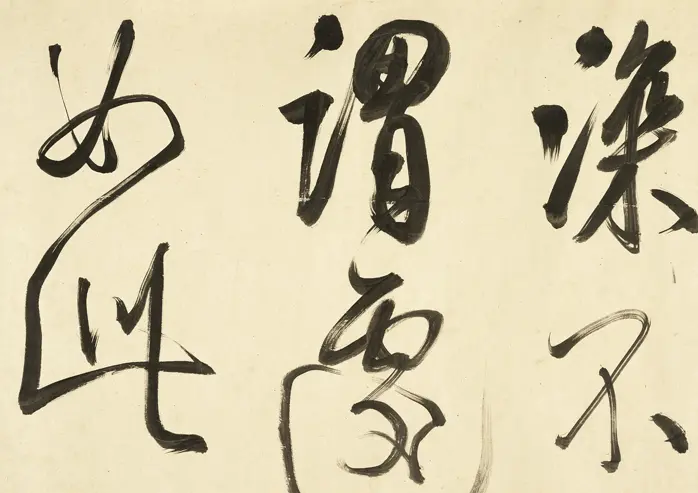 深不
謂處
如此